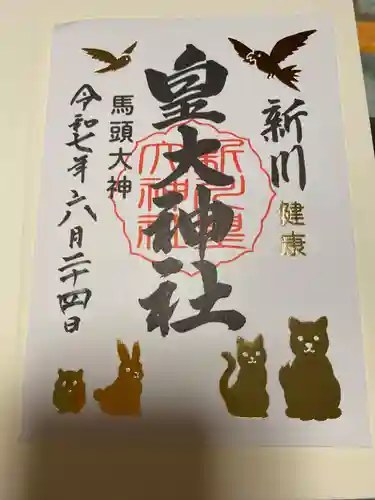 新川
健康
皇大神社
馬頭大神
令和七年六八月二十四日
新川皇大神社